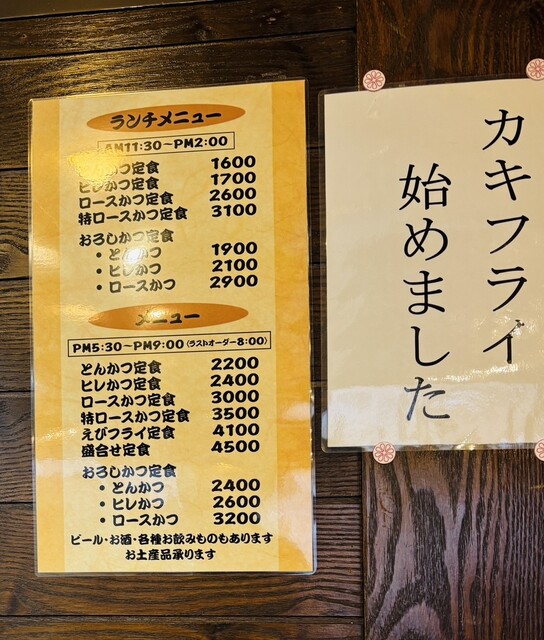 ランチメニュー
AM11:30~PM2:00
かつ定食 1600
ヒレかつ定食 1700
ロースかつ定食 2600
特ロースかつ定食 3100
おろしかつ定食
・とんかつ 1900
・ヒレかつ 2100
・ロースかつ 2900
メニュー
PM5:30~PM9:00(ラストオーダー8:00)
とんかつ定食 2200
ヒレかつ定食 2400
ロースかつ定食 3000
特ロースかつ定食 3500
えびフライ定食 4100
盛合せ定食 4500
おろしかつ定食
・とんかつ 2400
・ヒレかつ 2600
・ロースかつ 3200
ビール・お酒・各種お飲みものもあります
お土産品承ります
カキフライ
始めました